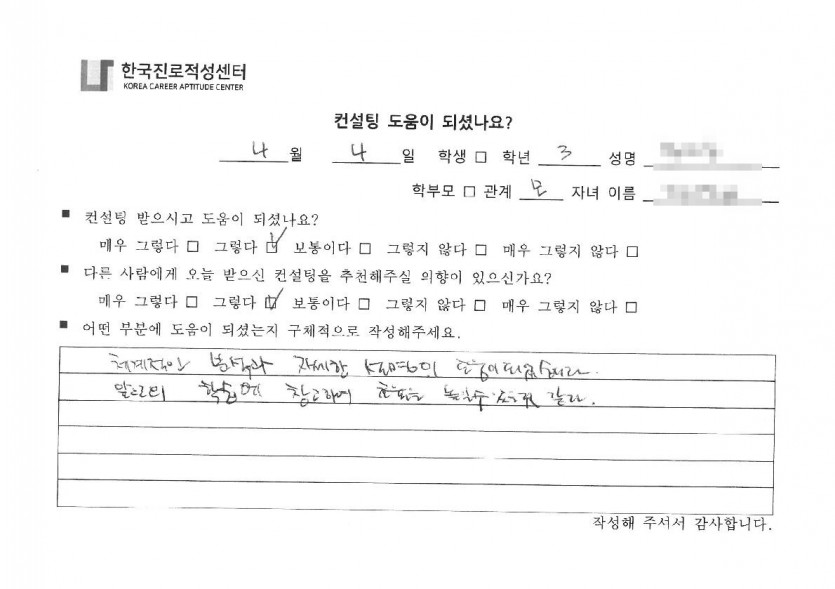 한국진로적성센터
KOREA CAREER APTITUDE CENTER
컨설팅 도움이 되셨나요?
4 월 4 일 학생 □ 학년 3 성명
학부모 □ 관계 모 자녀 이름
■ 컨설팅 받으시고 도움이 되셨나요?
매우 그렇다 □ 그렇다 ☑ 보통이다 □ 그렇지 않다 □ 매우 그렇지 않다 □
■ 다른 사람에게 오늘 받으신 컨설팅을 추천해주실 의향이 있으신가요?
매우 그렇다 □ 그렇다 ☑ 보통이다 □ 그렇지 않다 □ 매우 그렇지 않다 □
■ 어떤 부분에 도움이 되셨는지 구체적으로 작성해주세요.
체계적인 분석과 자세한 설명이 도움이 되었습니다.
앞으로의 학습에 참고하여 효율을 높일수 있을것 같다.
작성해 주셔서 감사합니다.